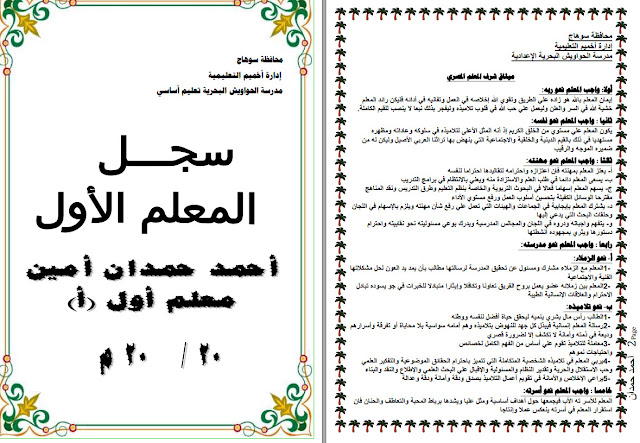 محافظة سوهاج
إدارة أخميم التعليمية
مدرسة الحواويش البحرية تعليم أساسي
سجـــل
المعلم الأول
أحمد حمدان أمين
معلم أول (أ)
٢٠ / ٢٠ م
محافظة سوهاج
إدارة أخميم التعليمية
مدرسة الحواويش البحرية الإعدادية
ميثاق شرف المعلم المصري
أولا: واجب المعلم نحو ربه:
إيمان المعلم بالله هو زاده على الطريق وتقوي الله إخلاصه في العمل وتفانيه في أدائه فليكن رائد المعلم
خشية الله في السر والعلن وليعمل علي حب الله في قلوب تلاميذه وليفجر بذلك نبعا لا ينضب للقيم الكاملة.
ثانيا : واجب المعلم نحو نفسه:
يكون المعلم علي مستوي من الخلق الكريم إذ أنه المثل الأعلى لتلاميذه في سلوكه وعاداته ومظهره
مستهديا في ذلك بالقيم الدينية والخلقية والاجتماعية التي ينهض بها تراثنا العربي الأصيل وليكن له من
ضميره الموجه والرقيب
ثالثا : واجب المعلم نحو مهنته:
أ- يعتز المعلم بمهنته فإن اعتزازه واحترامه لتقاليدها احتراما لنفسه
ب- يسعي المعلم دائما في طلب العلم والاستزادة منه ويعني بالانتظام في برامج التدريب
ج- يسهم المعلم إسهاما فعالا في البحوث التربوية والخاصة بنظم التعليم وطرق التدريس ونقد المناهج
مقترحا الوسائل الكفيلة بتحسين أسلوب العمل ورفع مستوي الأداء
د- يشترك المعلم بإيجابية في الجماعات والهيئات التي تعمل علي رفع شأن مهنته ويلتزم بالإسهام في اللجان
وحلقات البحث التي يدعي إليها
و- يتفهم واجباته ودروه في اللجان والمجالس المدرسية ويدرك بوعي مسئوليته نحو نقابيته واحترام
دستورها ويثري بمجهوده أنشطتها
رابعا : واجب المعلم نحو مدرسته:
أ- نحو الزملاء:
1-المعلم مع الزملاء مشارك ومسئول عن تحقيق المدرسة لرسالتها مطالب بأن يمد يد العون لحل مشكلاتها
الفنية والاجتماعية
2-المعلم بين زملائه عضو يعمل بروح الفريق تعاونا وتكافلا وإيثارا متبادلا للخبرات في جو يسوده تبادل
الاحترام والعلاقات الإنسانية الطيبة
ب- نحو تلاميذه:
1-الطالب رأس مال بشري ينميه ليحقق حياة أفضل لنفسه ووطنه
2-رسالة المعلم إنسانية فيبذل كل جهد للنهوض بتلاميذه وهم أمامه سواسية بلا محاباة أو تفرقة وأسرارهم
وديعة في ذمته وأمانة لا تكشف إلا لضرورة قصري
3-معاملة للتلاميذ تقوم علي أساس من الفهم الكامل لخصائص
واحتياجات نموهم
4-يربي المعلم في تلاميذه الشخصية المتكاملة التي تتميز باحترام الحقائق الموضوعية والتفكير العلمي
وحب الاستقلال والحرية وتقدير النظام والمسئولية والإقبال علي البحث العلمي والإطلاع والنقد والبناء
5-يراعي الإخلاص والأمانة في تقويم أعمال التلاميذ بصدق ودقة وأمانة ودقة وعدالة
خامسا : واجب المعلم نحو أسرته:
المعلم للأسر ته الأب فيجمعها حول أهداف أساسية ومثل عليا ويشدها برباط المحبة والتعاطف والحنان فإن
استقرار المعلم في أسرته ينعكس عملا وإنتاجا
أحمد حمدان
2 Page